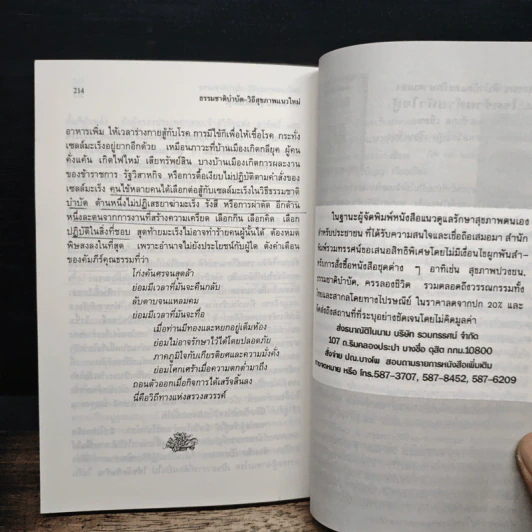 214
ธรรมชาติบำบัด-วิถีสุขภาพแนวใหม่
อาหารเพิ่ม ให้เวลาร่างกายสู้กับโรค การมีใช้ก็เพื่อให้เชื้อโรค กระทั่ง
เซลล์มะเร็งอยู่ยากอีกด้วย เหมือนภาวะที่บ้านเมืองเกิดกลียุค ผู้คน
คั่งแค้น เกิดไฟไหม้ เสียทรัพย์สิน บางบ้านเกิดการผละงาน
ของข้าราชการ รัฐวิสาหกิจ หรือการดื้อเงียบไม่ปฏิบัติตามคำสั่งของ
เซลล์มะเร็ง คนไข้หลายคนได้เลือกต่อสู้กับเซลล์มะเร็งในวิธีธรรมชาติ
บำบัด ด้านหนึ่งไม่ปฏิเสธยาฆ่ามะเร็ง รังสี หรือการผ่าตัด อีกด้าน
หนึ่งละคนจากการงานที่สร้างความเครียด เลือกกิน เลือกคิด เลือก
ปฏิบัติในสิ่งที่ชอบ สุดท้ายมะเร็งไม่อาจทำร้ายคนผู้นั้นได้ ต้องหมด
พิษสงลงในที่สุด เพราะอำนาจไม่ยังประโยชน์กับผู้ใด ดังคำเตือน
ของคัมภีร์คุณธรรมที่ว่า
โก่งคันศรจนสุดล้า
ย่อมมีเวลาที่มันจะคืนกลับ
ลับดาบจนแหลมคม
ย่อมมีเวลาที่มันจะทื่อ
เมื่อท่านมีทองและหยกอยู่เต็มห้อง
ย่อมไม่อาจรักษาไว้ได้โดยปลอดภัย
ภาคภูมิใจกับเกียรติยศและความมั่งคั่ง
ย่อมโศกเศร้าเมื่อความตกต่ำมาถึง
ถอนตัวออกเมื่อกิจการได้เสร็จสิ้นลง
นี่คือวิถีทางแห่งสรวงสวรรค์
ในฐานะผู้จัดพิมพ์หนังสือแนวดูแลรักษาสุขภาพตนเอง
สำหรับประชาชน ที่ได้รับความสนใจและเชื่อถือเสมอมา สำนัก
พิมพ์รวมทรรศน์ขอเสนอสิทธิพิเศษโดยไม่มีเงื่อนไขผูกพันสำ-
หรับการสั่งซื้อหนังสือชุดต่าง ๆ อาทิเช่น สุขภาพปวงชน,
ธรรมชาติบำบัด, ครรลองชีวิต รวมตลอดถึงวรรณกรรมทั้ง
ไทยและสากลโดยทางไปรษณีย์ ในราคาลดจากปก 20% และ
จัดส่งถึงสถานที่ที่ระบุอย่างชัดเจนโดยไม่คิดมูลค่า
ส่งธนาณัติในนาม บริษัท รวมทรรศน์ จำกัด
107 ถ.ริมคลองประปา บางซื่อ ดุสิต กทม.10800
สั่งจ่าย ปณ.บางโพ สอบถามรายการหนังสือเพิ่มเติม
ทางจดหมาย หรือ โทร.587-3707, 587-8452, 587-6209